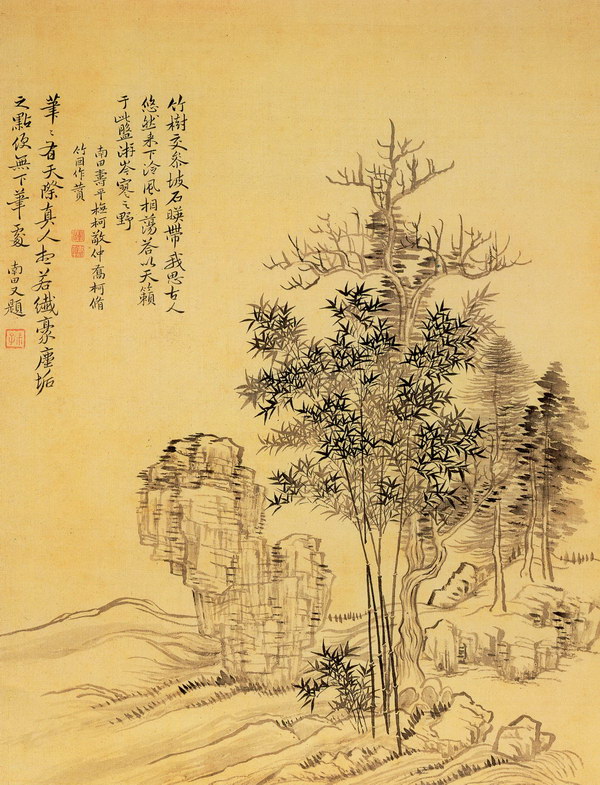 竹樹交參坡石暎帶我思古人
悠然来下泠風相蕩荅以天籟
于此盤游岑寒之野
南田壽平橅柯敬仲喬柯脩
竹因作贊
筆〻有天際真人想若纖豪塵垢
之點便無下筆處 南田又題